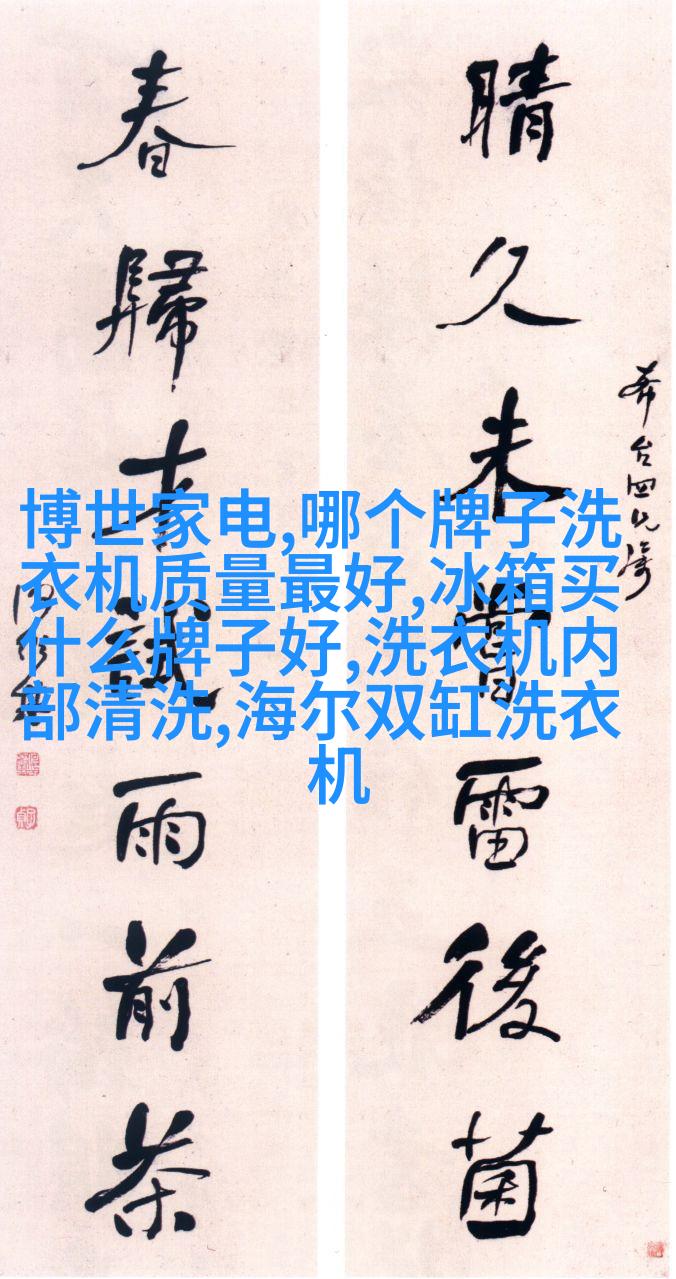 晴久未嘗雷後菌
春歸試雨前茶
博世家电,哪个牌子洗
衣机质量最好,冰箱买
什么牌子好,洗衣机内
部清洗,海尔双缸洗衣
机